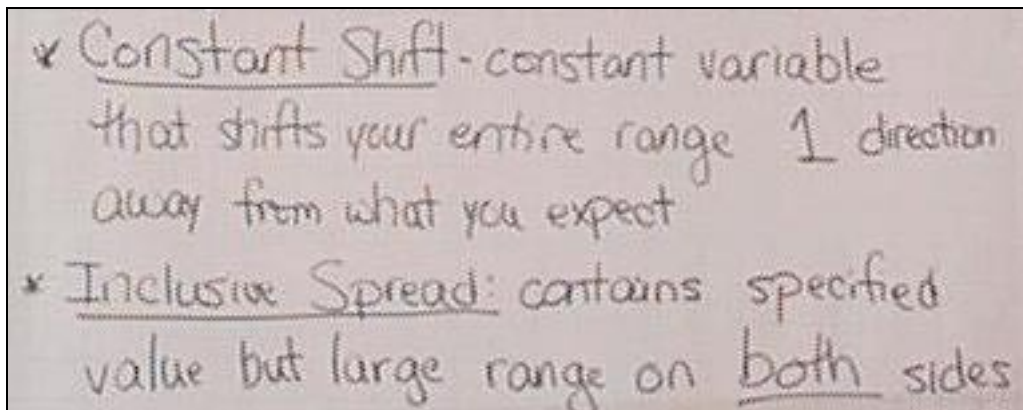 * Constant Shift - constant variable
that shifts your entire range 1 direction
away from what you expect
* Inclusive Spread: contains specified
value but large range on both sides